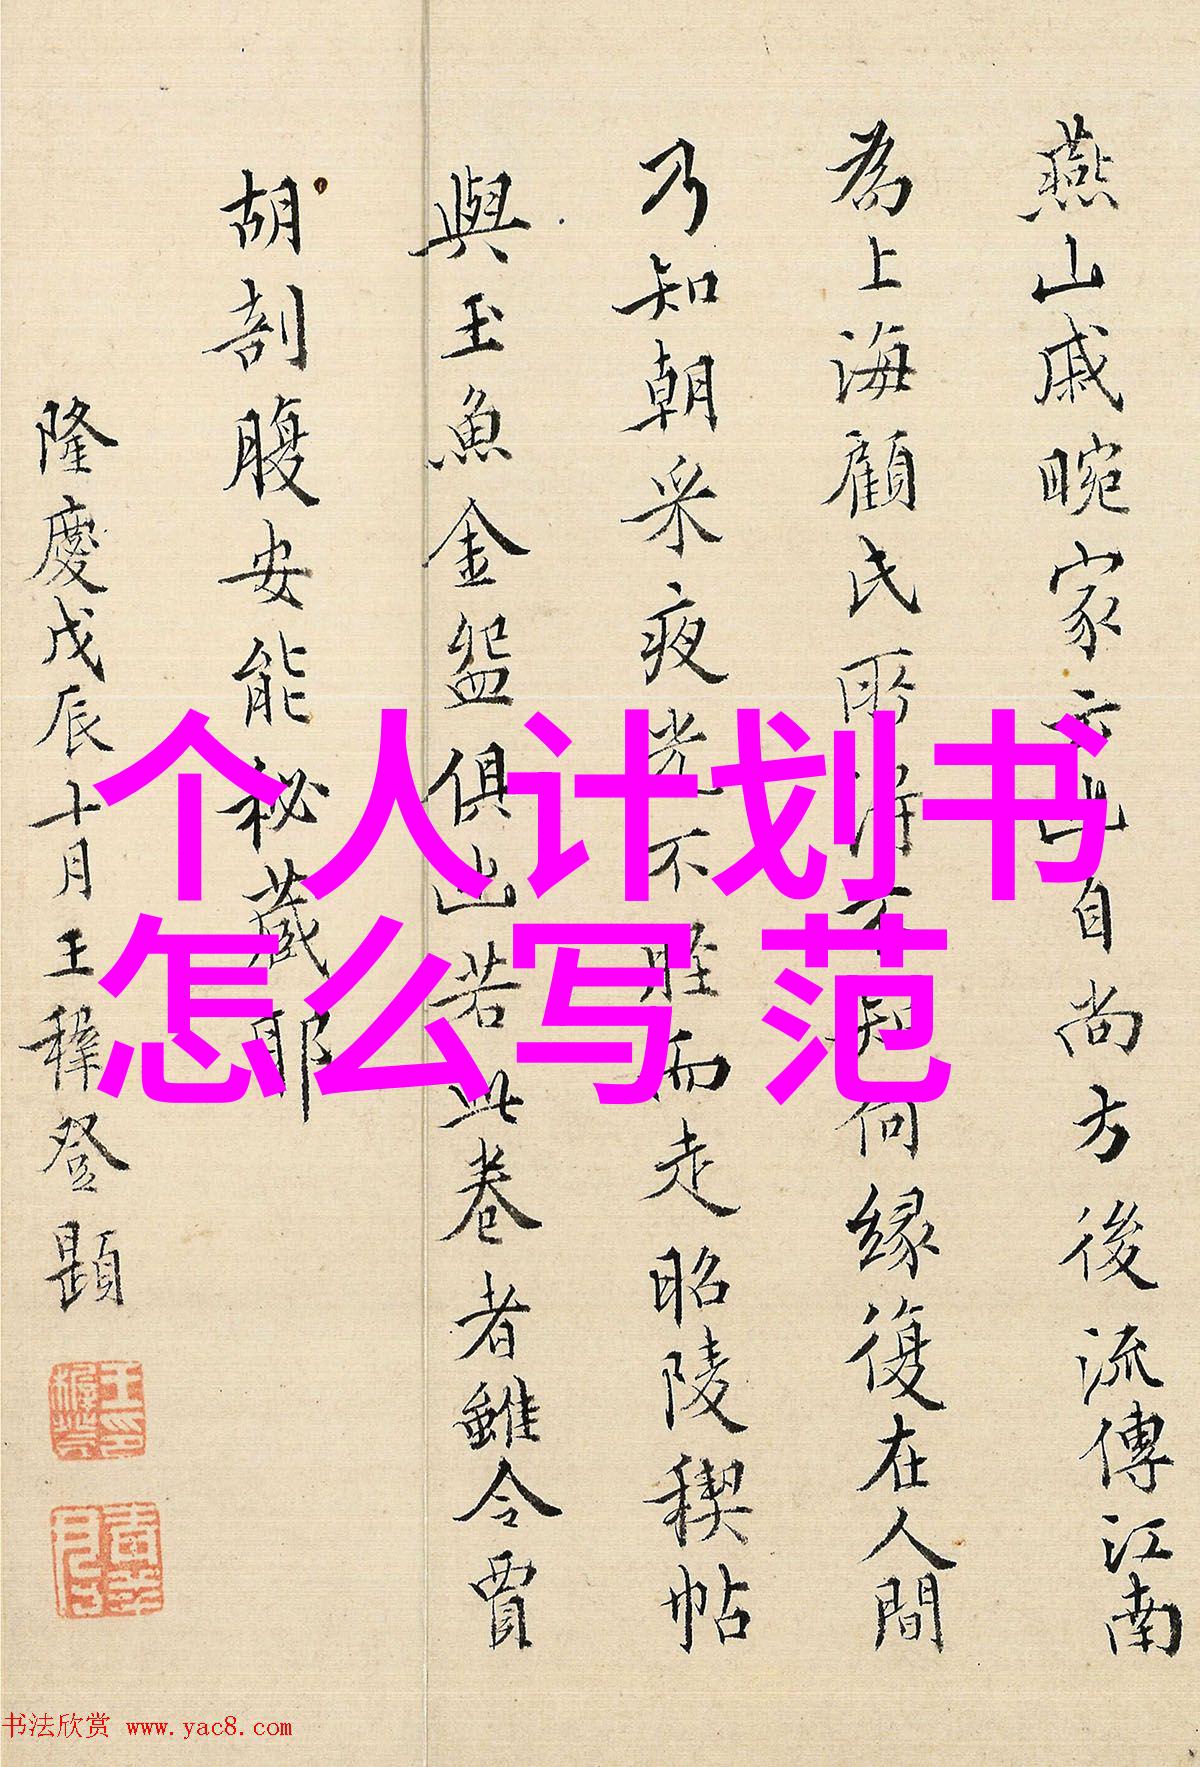 燕山戚畹家云此自尚方後流傳江南
為上海顧氏所得不知何緣復在人間
乃知朝采夜光不脛而走昭陵稧帖
與玉魚金盌俱出若此卷者雖令賈
胡剖腹安能秘藏耶
隆慶戊辰十月王穉登題
个人计划书
怎么写 范
书法欣赏 www.yac8.com